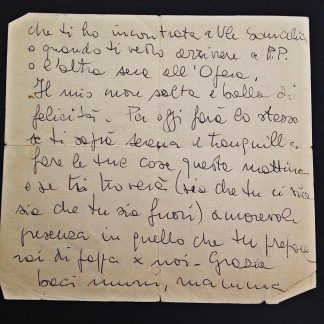 che ti ho incontrata a Vle Somalia
o quando ti vedo arrivare a P.P.
o l'altra sera all'Opera.
Il mio cuore salta e balla di
felicità. Per oggi farà lo stesso
se ti saprà serena e tranquilla
fare le tue cose questa mattina
e se tri troverà (sia che tu ci sia
sia che tu sia fuori) amorevole
presenza in quello che tu prepare
rai di pappa x noi - Grazie
baci mumi, mamma